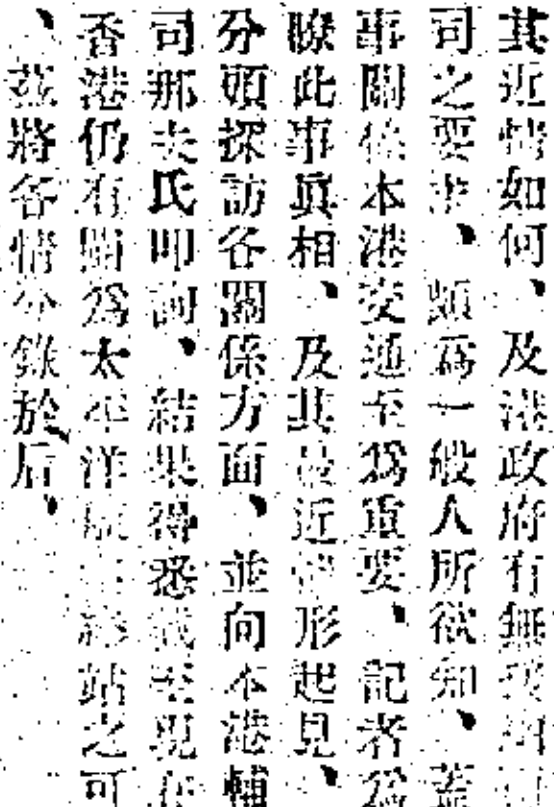 其近情如何、及港政府有無
司之要求、頗爲一般人所欲知、蓋
事關係本港交通至爲重要、記者爲
瞭此事眞相、及其最近情形起見、
分頭探訪各關係方面、並向本港輔
司那夫氏叩詢、結果得悉截至現在
香港仍有關爲太平洋航空終站之可
、茲將各情分錄於后、